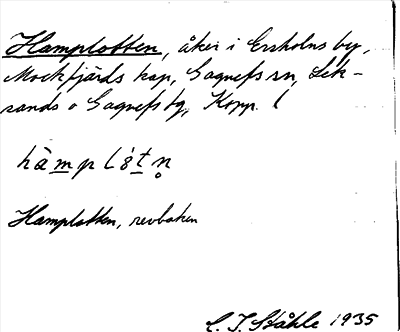 Hamplotten, åker i Ersholns by,
Mockfjärds kap, Gagnefs sn, Lek-
sands o Gagnefs tg, Kopp. l
hàmplòtn̥
Hamplotten, revbacken
C. I. Ståhle 1935